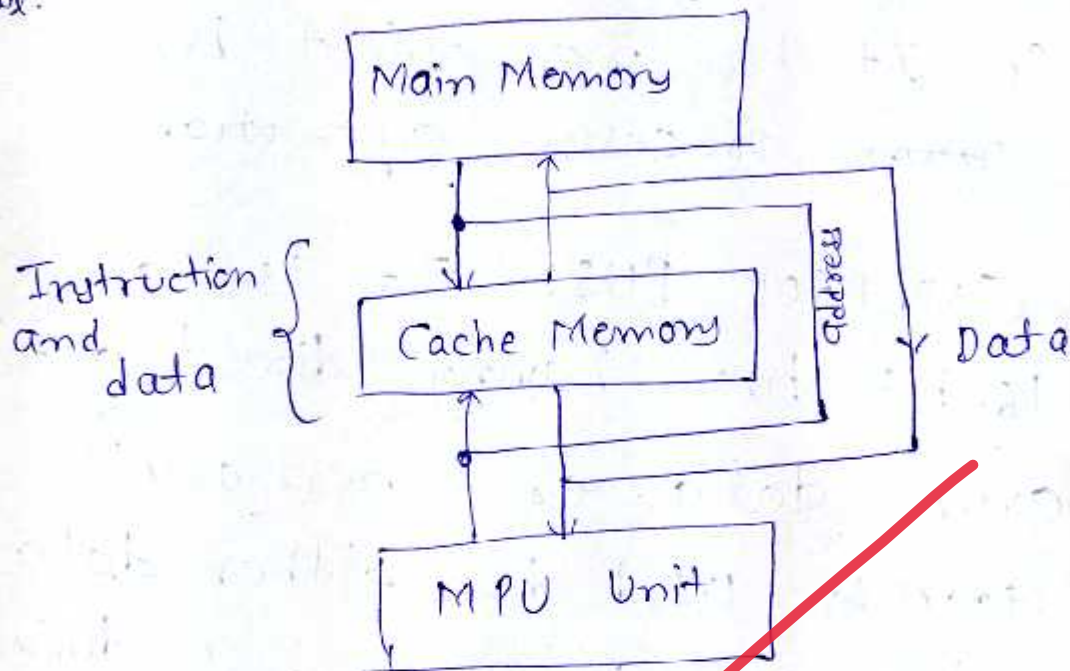 Main Memory
Instruction
and
data
Cache Memory
address
Data
MPU Unit